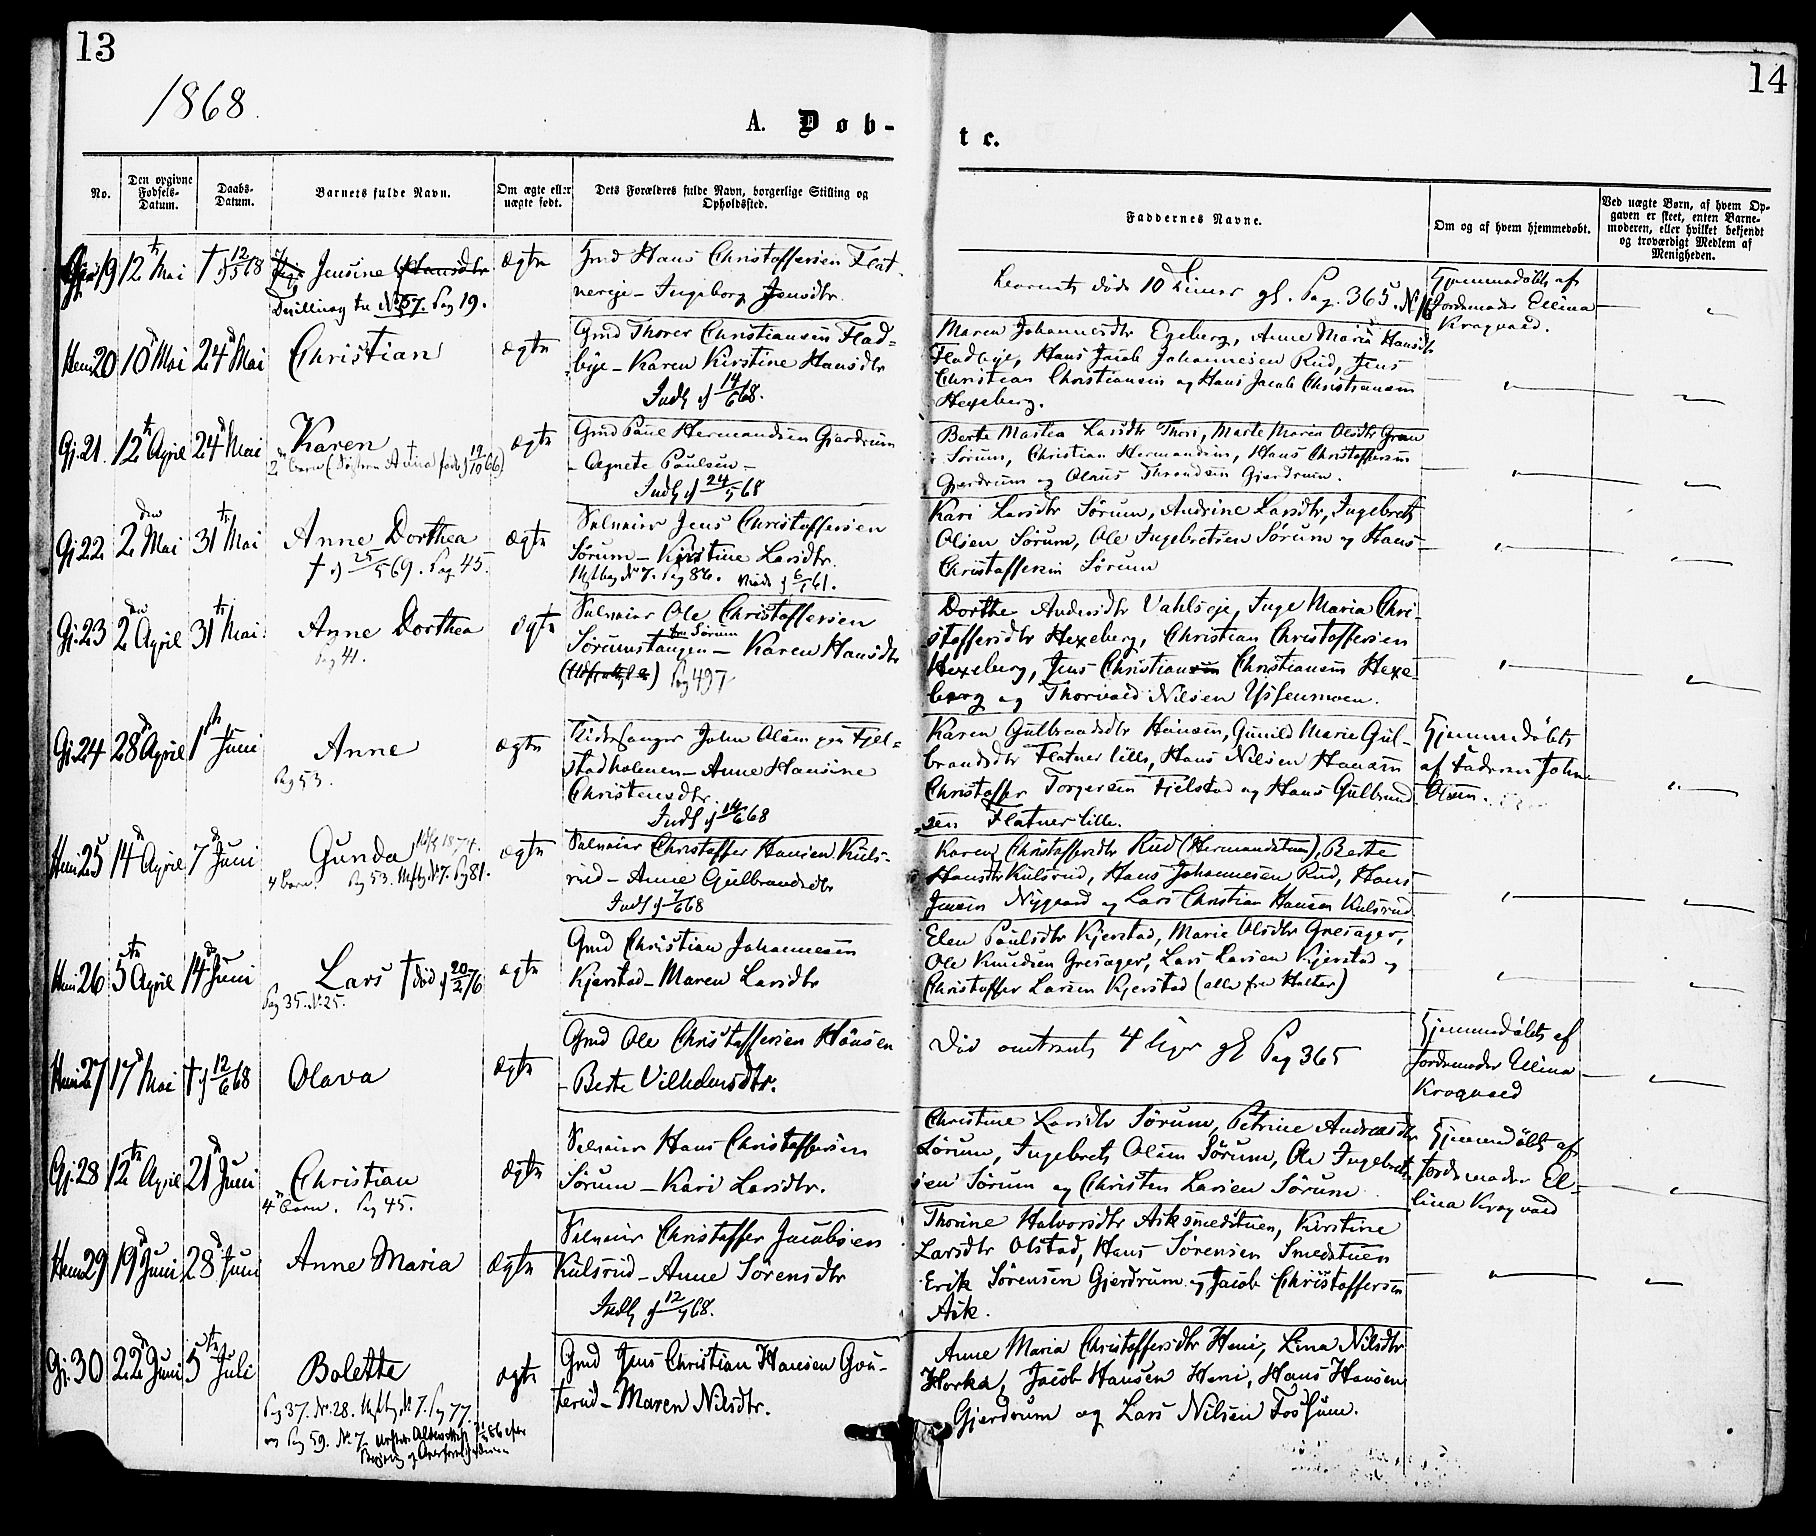 13
14
1868.
A. Døb-
te.
No.
Den opgivne
Fødsels-
Datum.
Daabs-
Datum.
Barnets fulde Navn.
Om ægte eller
uægte født.
Dets Forældres fulde Navn, borgerlige Stilling og
Opholdssted.
Faddernes Navne.
Om og af hvem hjemmedøbt.
Ved uægte Børn, af hvem Op-
gaven er skeet, enten Barne-
moderen, eller hvilket bekjendt
og troværdigt Medlem af
Menigheden.
19 12te Mai † 12/5 68 Jensine ægte
Tvilling til No 57. Pag 19.
Gmd Hans Christoffersen Flat-
nereje - Ingeborg Jensdtr.
Barnets døde 10 Timer gl. Pag. 365. N 16
Hjemmedøbt af
Jordemoder Ellina
Kragvold.
Hem 20 10d Mai 24d Mai Christian ægte
Gmd Thorer Christiansen Flad-
bye - Karen Kirstine Hansdtr
Indf d 14/6 68.
Maren Johannesdtr Egeberg, Anne Maria Hansdtr
Fladbye, Hans Jacob Johannesen Rud, Jens
Christian Christiansen og Hans Jacob Christiansen
Hexeberg.
Gj. 21. 12te April 24d Mai Karen ægte
2det barn (Søsteren Anna født d 19/10 66)
Gmd Paul Hermandsen Gjerdrum
- Agnete Paulsen -
Indf d 24/5 68
Berte Mathea Larsdtr Thori, Marte Maria Olsdtr Grau
i Sørum, Christian Hermandsen, Hans Christoffersen
Gjerdrum og Olaus Throndsen Gjerdrum.
Gj 22 2den Mai 31te Mai Anne Dorthea ægte
† d 25/5 69. Pag 45.
Selveier Jens Christoffersen
Sørum - Kirstine Larsdtr.
No 7. Pag 86. Viede d 6/1 61.
Kari Larsdtr Sørum, Andrine Larsdtr, Ingebret
Olsen Sørum, Ole Ingebretsen Sørum og Hans
Christoffersen Sørum
Gj. 23 2den April 31te Mai Anne Dorthea ægte
Pag 41.
Selveier Ole Christoffersen
fra Sørum
Sørumstangen - Karen Hansdtr
Pag 497
Dorthe Andersdtr Vahlseje, Inge Maria Chri-
stoffersdtr Hexeberg, Christian Christoffersen
Hexeberg, Jens Christiansen Christiansen Hexe-
berg og Thorvald Nilsen Ysfenmoen.
Gj. 24 28d April 1ste Juni Anne ægte
Pag 53.
Kirkesanger John Olsen paa Fjel-
stadholmen - Anne Hansine
Christensdtr.
Indf d 14/6 68
Karen Gulbrandsdtr Hønsen, Gunild Marie Gul-
brandsdtr Flatner lille, Hans Nilsen Hønsen
Christoffer Torgersen Fjelstad og Hans Gulbrand-
sen Flatner lille.
Hjemmedøbt
af Faderen John
Olsen.
Hem 25 14d April 7d Juni Gunda ægte
4 barn. Pag 53. No 7. Pag 81.
Selveier Christoffer Hansen Kuls-
rud - Anne Gulbrandsdtr
Indf d 7/6 68
Karen Christoffersdtr Rud (Hermandstuen), Berte
Hansdtr Kulsrud, Hans Johannesen Rud, Hans
Jensen Nygaard og Lars Christian Hansen Kulsrud.
Hem 26 5te April 14d Juni Lars † død d 20/2 76 ægte
Pag 35. No 25.
Gmd Christian Johannesen
Kjerstad - Maren Larsdtr
Elen Paulsdtr Kjerstad, Marie Olsdtr Gresager,
Ole Knudsen Gresager, Lars Larsen Kjerstad og
Christoffer Larsen Kjerstad (alle fra Holter)
Hem 27 17d Mai † d 12/6 68 Olava ægte
Gmd Ole Christoffersen Hønsen
- Berte Vilhelmsdtr.
Død omtrent 4 Uger gl Pag 365
Hjemmedøbt af
Jordemoder Ellina
Kragvold
Gj. 28 12te April 21d Juni Christian ægte
4de barn. Pag 45.
Selveier Hans Christoffersen
Sørum - Kari Larsdtr.
Christine Larsdtr Sørum, Petrine Andreasdtr
Sørum, Ingebret Olsen Sørum, Ole Ingebret-
sen Sørum og Christen Larsen Sørum
Hjemmedøbt af
Jordemoder El-
lina Kragvold
Hem 29 19d Juni 28d Juni Anne Maria ægte
Selveier Christoffer Jacobsen
Kulsrud - Anne Sørensdtr
Indf d 12/7 68.
Thorine Halvorsdtr Asksmedstuen, Kirstine
Larsdtr Olstad, Hans Sørensen Smedstuen
Erik Sørensen Gjerdrum og Jacob Christoffersen
Ask.
Gj. 30 22d Juni 5te Juli Bolette ægte
Pag 37. No. 28. No 7. Pag 77.
Pag 59. No. 7.
Gmd Jens Christian Hansen Gou-
terud - Maren Nilsdtr.
Anne Maria Christoffersdtr Heni, Lina Nilsdtr
Horka, Jacob Hansen Heni, Hans Hansen
Gjerdrum og Lars Nilsen Fossum.